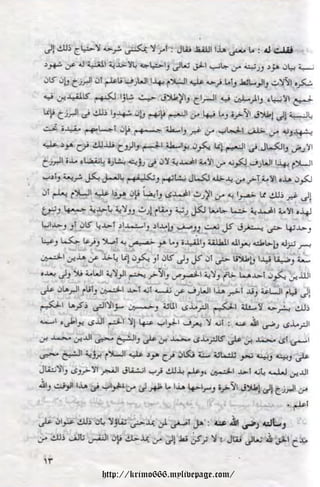 فقلت له : ما معنى هذا اللفظ فقال : أمر لا يمكننى شرحه لاحتياج ذلك إلى
نسبة بيان هود ورتبته من جانب الحق تعالى واحتياجه بالأخذية المغنية له عن شهود
الآلات والوسائط وأما فرحه عليه السلام بهذا العارف فاعلم أن البرزخ وإن كان
لجميع الأنبياء والمرسلين فيه السراح والإطلاق حيث شاؤا لكنهم كالمقيدين فيه
بالنسبة إلى إطلاق الآخرة وما فيها من النعيم فإنهم وإن شهدوا ذلك فى البرزخ فإنما
يشهدونه من خلف الحجاب من غير واسطة جسمهم فإن أجسامهم مقيدة تحت
الأرض والكمال فى النعيم إنما يكون بواسطة الجسم والروح فلذلك فرح هود عليه
السلام بهذا العارف لكونه من الأمة المحمدية لأن فى رؤيته بشارة بانقضاء مدة البرزخ
لكون هذه الأمة آخر من يدخله لكمال نشأتهم وتكليفهم بالعمل بكل شريعة وأدب
إلى غير ذلك مما خصوا به من الإرث المحمدى وأيضاً فإن هودا عليه السلام يعلم أن
لهذه الأمة المحمدية ختما جامعا لكل رتبة ومقام إرث وولاية بأحدية جمعها وتنوع
وحدتها حتى يستغرق كل نعت ووصف وإمداد واستمداد أحديا كان أو وحدانيا
بسر تنزله وإحاطته بعوالمه المطلقة والمقيدة وما هو خصيص به أصلا وفرعا حكما وعينا
سعة وضيقا قيدا وإطلاقا حتى أن كل ولى كان أو يكون إنما يأخذ عن هذين الختمين
اللذين يكون أحدهما خاتم ولاية الخصوص والآخر يختم الولاية العامة فلا ولى بعده
إلى قيام الساعة وقد أخبر هذا العارف عن نفسه أنه أحد الختمين وأقام البرهان على
ذلك بشرحه لأسئلة الحكيم الترمذى المائة وخمسين سؤالا التى ذكرها الحكيم
الترمذى رضى الله عنه : أنه لا يعرف الجواب عنها إلا الختم الذى يواطىء اسمه
اسمى أى محمد بن على كالترمذى محمد بن على والشيخ محيى الدين محمد بن
على وبينه وبينه نحو ثلثمائة سنة فكان فرح هود عليه السلام برؤية الشيخ محيى
الدين لعلمه بأنه أحد الختمين ، وعلم بذلك قرب انشقاق الفجر الأخروى والانتقال
من البرزخ إلى إطلاق الآخرة وسراحها هذا ما ظهر لى من الجواب فى هذا الوقت والله
أعلم .
وسألته رضى الله عنه : هل أصغى لمن يمدحنى تفاؤلا بأن ذلك عنوان على
مدح الحق لله تعالى فقال : لا تركن قط إلى من يمدحك فإن النفس تألف ذلك من
١٣
http://krimo666.mylivepage.com/